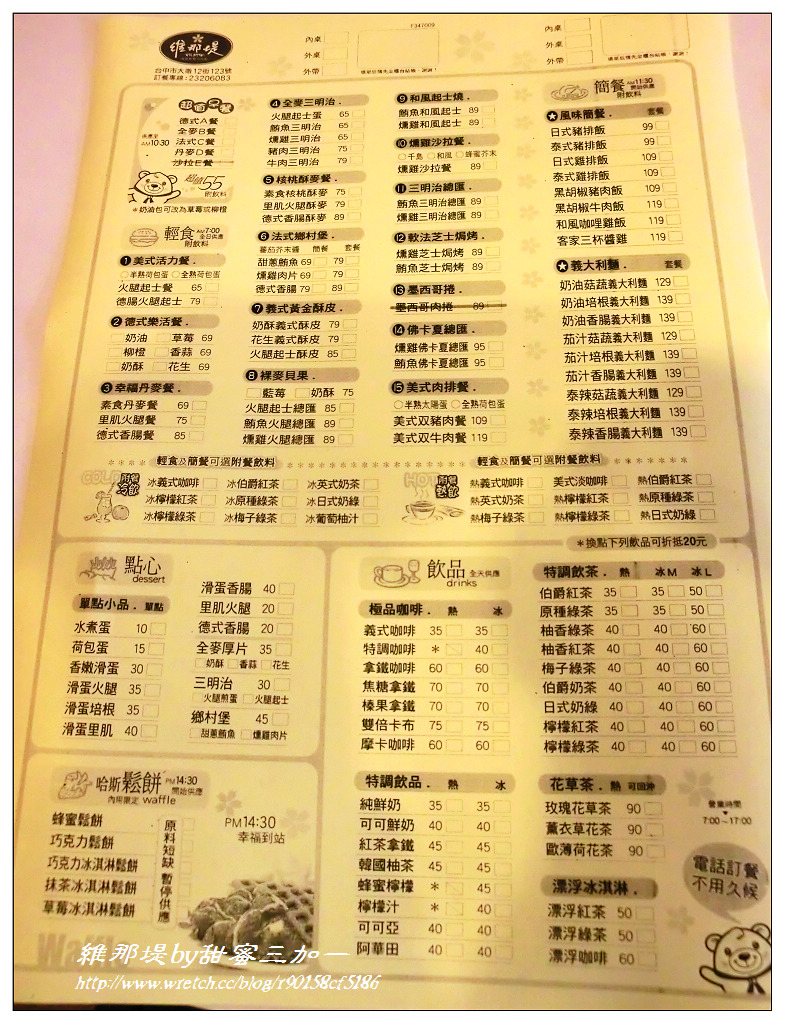 維那堤
台中市大墩12街123號
訂餐專線:23206083
F347009
內桌
外桌
外帶
內桌
外桌
外帶
超值早餐
供應至
AM10:30
德式A餐
全麥B餐
法式C餐
丹麥D餐
沙拉E餐
超值55
附飲料
*奶油包可改為草莓或柳橙
輕食 AM7:00
全日供應
附飲料
❶美式活力餐.
半熟荷包蛋 全熟荷包蛋
火腿起士餐 65
德腸火腿起士 79
❷德式樂活餐.
奶油 草莓 69
柳橙 香蒜 69
奶酥 花生 69
❸幸福丹麥餐.
素食丹麥餐 69
里肌火腿餐 75
德式香腸餐 85
❹全麥三明治.
火腿起士蛋 65
鮪魚三明治 65
燻雞三明治 65
豬肉三明治 79
牛肉三明治 79
❺核桃酥麥餐.
素食核桃酥麥 75
里肌火腿酥麥 79
德式香腸酥麥 89
❻法式鄉村堡.
蕃茄芥末醬 簡餐 套餐
甜蔥鮪魚 69 79
燻雞肉片 69 79
德式香腸 79 89
❼義式黃金酥皮.
奶酥義式酥皮 79
花生義式酥皮 79
火腿起士酥皮 85
❽裸麥貝果.
藍莓 奶酥 75
火腿起士總匯 85
鮪魚火腿總匯 89
燻雞火腿總匯 89
❾和風起士燒.
鮪魚和風起士 89
燻雞和風起士 89
❿燻雞沙拉餐.
千島 和風 蜂蜜芥末
燻雞沙拉餐 89
⓫三明治總匯.
鮪魚三明治總匯 89
燻雞三明治總匯 89
⓬軟法芝士焗烤.
燻雞芝士焗烤 89
鮪魚芝士焗烤 89
⓭墨西哥捲.
墨西哥肉捲 89
⓮佛卡夏總匯.
燻雞佛卡夏總匯 95
鮪魚佛卡夏總匯 95
⓯美式肉排餐.
半熟太陽蛋 全熟荷包蛋
美式双豬肉餐 109
美式双牛肉餐 119
簡餐 AM11:30
開始供應
附飲料
★風味簡餐. 套餐
日式豬排飯 99
泰式豬排飯 99
日式雞排飯 109
泰式雞排飯 109
黑胡椒豬肉飯 109
黑胡椒牛肉飯 119
和風咖哩雞飯 119
客家三杯醬雞 119
★義大利麵. 套餐
奶油菇蔬義大利麵 129
奶油培根義大利麵 139
奶油香腸義大利麵 139
茄汁菇蔬義大利麵 129
茄汁培根義大利麵 139
茄汁香腸義大利麵 139
泰辣菇蔬義大利麵 129
泰辣培根義大利麵 139
泰辣香腸義大利麵 139
輕食及簡餐可選附餐飲料
COLD
附餐冷飲
冰義式咖啡 冰伯爵紅茶 冰英式奶茶
冰檸檬紅茶 冰原種綠茶 冰日式奶綠
冰檸檬綠茶 冰梅子綠茶 冰葡萄柚汁
輕食及簡餐可選附餐飲料
HOT
附餐熱飲
熱義式咖啡 美式淡咖啡 熱伯爵紅茶
熱英式奶茶 熱檸檬紅茶 熱原種綠茶
熱梅子綠茶 熱檸檬綠茶 熱日式奶綠
*換點下列飲品可折抵20元
點心
dessert
單點小品. 單點
水煮蛋 10
荷包蛋 15
香嫩滑蛋 30
滑蛋火腿 35
滑蛋培根 35
滑蛋里肌 40
滑蛋香腸 40
里肌火腿 20
德式香腸 20
全麥厚片 35
奶酥 香蒜 花生
三明治 30
火腿煎蛋 火腿起士
鄉村堡 45
甜蔥鮪魚 燻雞肉片
哈斯鬆餅 PM14:30
開始供應
內用限定 waffle
蜂蜜鬆餅
巧克力鬆餅
巧克力冰淇淋鬆餅
抹茶冰淇淋鬆餅
草莓冰淇淋鬆餅
原料短缺 暫停供應
PM14:30
幸福到站
飲品 全天供應
drinks
極品咖啡. 熱 冰
義式咖啡 35 35
特調咖啡 * 40
拿鐵咖啡 60 60
焦糖拿鐵 70 70
榛果拿鐵 70 70
雙倍卡布 75 75
摩卡咖啡 60 60
特調飲品. 熱 冰
純鮮奶 35 35
可可鮮奶 40 40
紅茶拿鐵 45 45
韓國柚茶 45 45
蜂蜜檸檬 * 45
檸檬汁 * 40
可可亞 40 40
阿華田 40 40
特調飲茶. 熱 冰M 冰L
伯爵紅茶 35 35 50
原種綠茶 35 35 50
柚香綠茶 40 40 60
柚香紅茶 40 40 60
梅子綠茶 40 40 60
伯爵奶茶 40 40 60
日式奶綠 40 40 60
檸檬紅茶 40 40 60
檸檬綠茶 40 40 60
花草茶. 熱 可回沖
玫瑰花草茶 90
薰衣草花茶 90
歐薄荷花茶 90
漂浮冰淇淋.
漂浮紅茶 50
漂浮綠茶 50
漂浮咖啡 60
營業時間
7:00~17:00
電話訂餐
不用久候
維那堤by甜蜜三加一
http://www.wretch.cc/blog/r90158cf5186